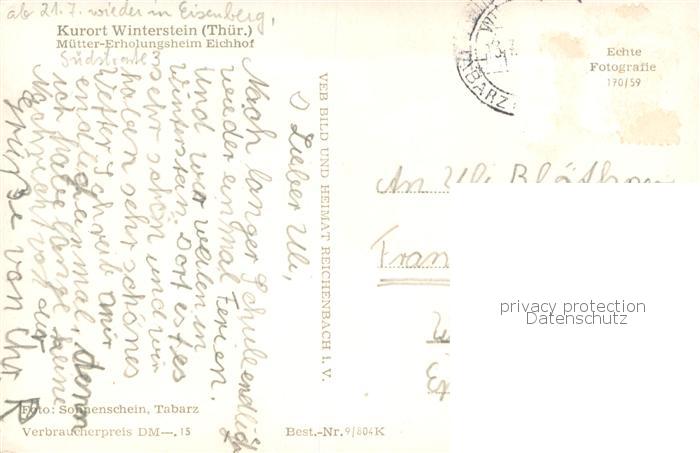 ab 21.7. wieder in Eisenberg,
Kurort Winterstein (Thür.)
Mütter-Erholungsheim Eichhof
Südstraße 3
Lieber Uli,
Nach langer Schule endlich
wieder einmal Ferien.
Und zwar weilen in
Winterstein. Dort ist es
sehr schön und wir
haben sehr schönes
Wetter. Schreib mir
endlich einmal, denn
ich habe lange keine
Nachricht von dir.
Grüße von Ihr. R
Foto: Sonnenschein, Tabarz
Verbraucherpreis DM —.15
Best.-Nr. 9/804K
VEB BILD UND HEIMAT REICHENBACH I. V.
TABARZ
Echte
Fotografie
170/59
An Uli
Fran
privacy protection
Datenschutz